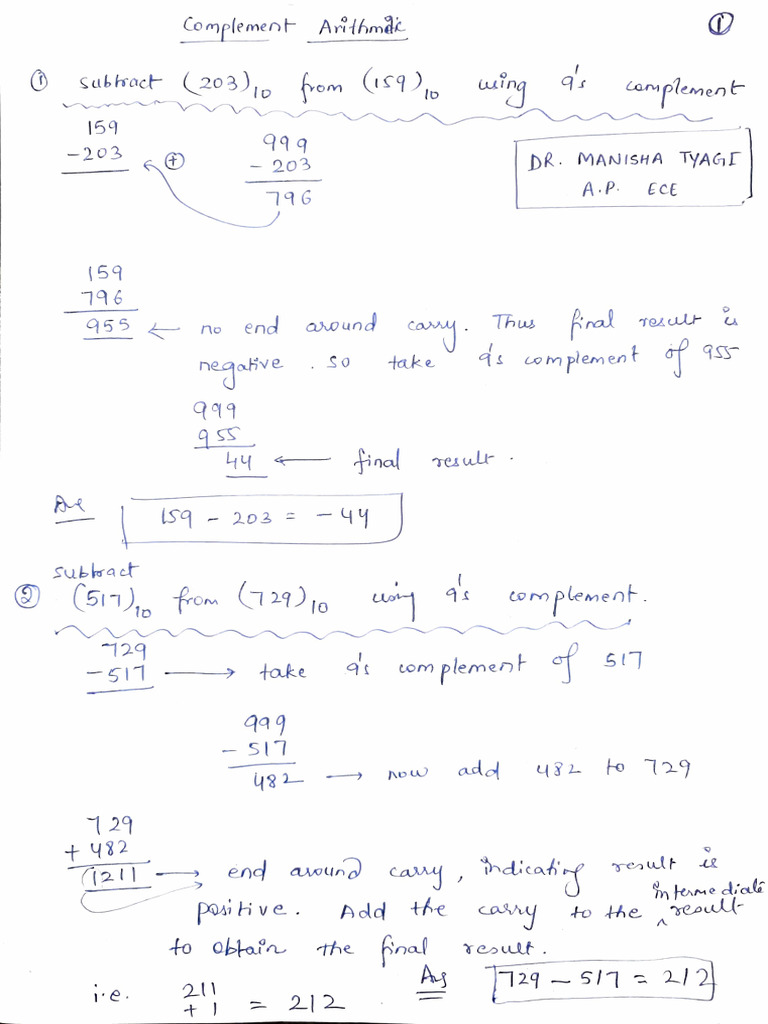 Complement Arithmetic
①
① subtract (203)10 from (159)10 using 9's complement
159
-203
⊕
999
- 203
796
DR. MANISHA TYAGI
A.P. ECE
159
796
955 ← no end around carry. Thus final result is
negative. so take 9's complement of 955
999
955
44 ← final result.
Ans
159 - 203 = -44
subtract
② (517)10 from (729)10 using 9's complement.
729
-517 → take 9's complement of 517
999
- 517
482 → now add 482 to 729
729
+ 482
1211 → end around carry, indicating result is
positive. Add the carry to the intermediate result
to obtain the final result.
i.e. 211
+ 1 = 212
Ans 729 - 517 = 212